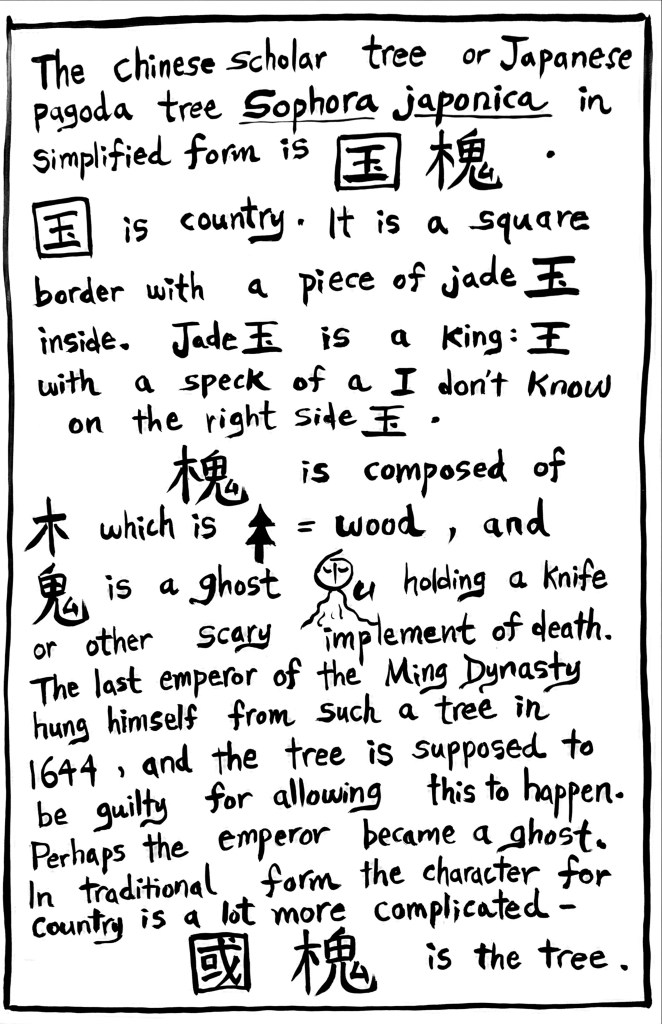 The Chinese Scholar tree or Japanese
pagoda tree Sophora japonica in
simplified form is 国 槐 .
国 is country. It is a square
border with a piece of jade 玉
inside. Jade 玉 is a king: 王
with a speck of a I don't know
on the right side 玉 .
槐 is composed of
木 which is = wood , and
鬼 is a ghost holding a knife
or other scary implement of death.
The last emperor of the Ming Dynasty
hung himself from such a tree in
1644 , and the tree is supposed to
be guilty for allowing this to happen.
Perhaps the emperor became a ghost.
In traditional form the character for
country is a lot more complicated -
國 槐 is the tree .